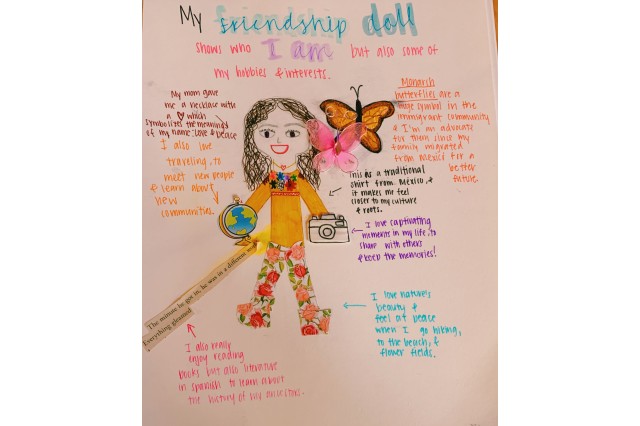 My friendship doll
shows who I am but also some of
my hobbies & interests.
My mom gave
me a necklace with
a ♡ which
symbolizes the meanings
of my name: love & peace
I also love
traveling, to
meet new people
& learn about
new
communities.
Monarch
butterflies are a
huge symbol in the
immigrant community
& I'm an advocate
for them since my
family migrated
from Mexico for a
better
future.
This is a traditional
shirt from México, &
it makes me feel
closer to my culture
& roots.
I love captivating
moments in my life, to
share with others
& keep the memories!
The minute he got in, he was in a different
Everything gleamed
I love nature's
beauty &
feel at peace
when I go hiking,
to the beach, &
flower fields.
I also really
enjoy reading
books but also literature
in spanish to learn about
the history of my ancestors.